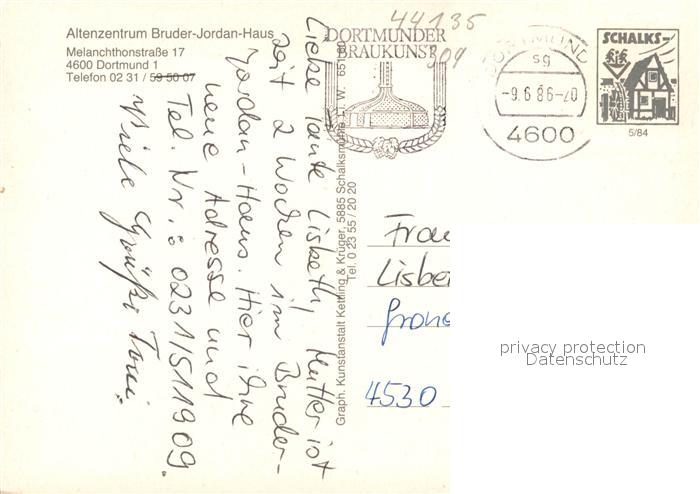 Altenzentrum Bruder-Jordan-Haus
Melanchthonstraße 17
4600 Dortmund 1
Telefon 02 31 / 59 50 07
44135
DORTMUNDER
BRAUKUNST
309
DORTMUND
sg
-9.6.86-20
4600
SCHALKS-
5/84
Liebe Tante Lisbeth, Mutter ist
seit 2 Wochen im Bruder-
Jordan-Haus. Hier ihre
neue Adresse und
Tel. Nr.: 0231/511909.
Viele Grüße Toni.
Graph. Kunstanstalt Kettling & Krüger, 5885 Schalksmühle i. W. 651
Tel. 0 23 55 / 20 20
Frau
Lisbe
Grone
4530
privacy protection
Datenschutz